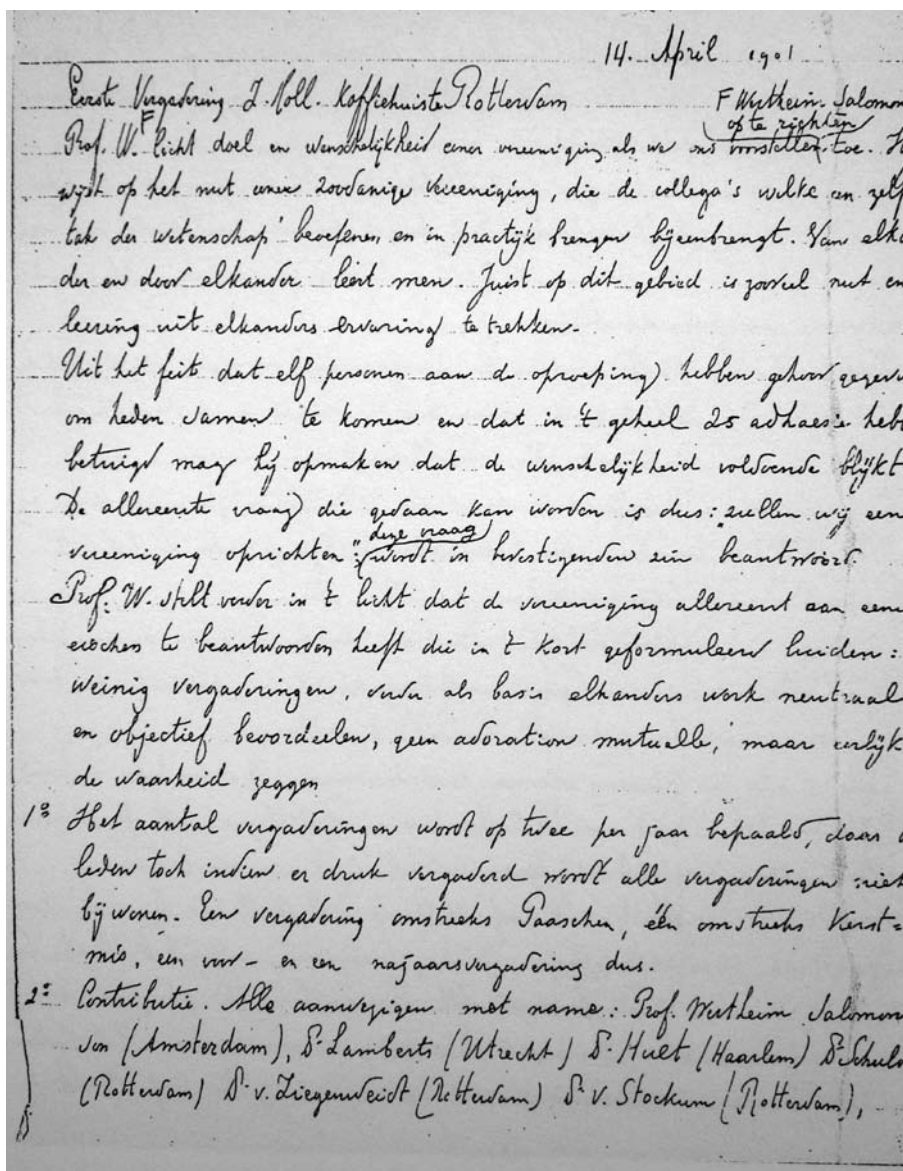 14. April 1901
Eerste Vergadering Z. Holl. Koffiehuis te Rotterdam F Wertheim Salomon
op te richten
Prof. W. F licht doel en wenschelijkheid eener vereeniging als we ons voorstellen toe. H
wijst op het nut eener zoodanige vereeniging, die de collega's welke een zelf
tak der wetenschap beoefenen en in practijk brengen bijeenbrengt. Van elka
der en door elkander leert men. Juist op dit gebied is zooveel nut en
leering uit elkanders ervaring te trekken.
Uit het feit dat elf personen aan de oproeping hebben gehoor gegeve
om heden samen te komen en dat in 't geheel 25 adhaesie hebb
betuigd mag hij opmaken dat de wenschelijkheid voldoende blijkt
De allereerste vraag die gedaan kan worden is dus: "zullen wij een
deze vraag
vereeniging oprichten" wordt in bevestigenden zin beantwoord.
Prof. W. stelt verder in 't licht dat de vereeniging allereerst aan eene
eischen te beantwoorden heeft die in 't kort geformuleerd luiden:
weinig vergaderingen, verder als basis elkanders werk neutraal
en objectief beoordeelen, geen adoration mutuelle, maar eerlijk
de waarheid zeggen
1º Het aantal vergaderingen wordt op twee per jaar bepaald, daar d
leden toch indien er druk vergaderd wordt alle vergaderingen niet
bijwonen. Een vergadering omstreeks Paaschen, één omstreeks Kerst=
mis, een voor- en een najaarsvergadering dus.
2º Contributie. Alle aanwezigen met name: Prof. Wertheim Salomon
son (Amsterdam), Dr. Lamberts (Utrecht) Dr. Huet (Haarlem) Dr. Schuld
(Rotterdam) Dr. v. Ziegenweidt (Rotterdam) Dr. v. Stockum (Rotterdam),